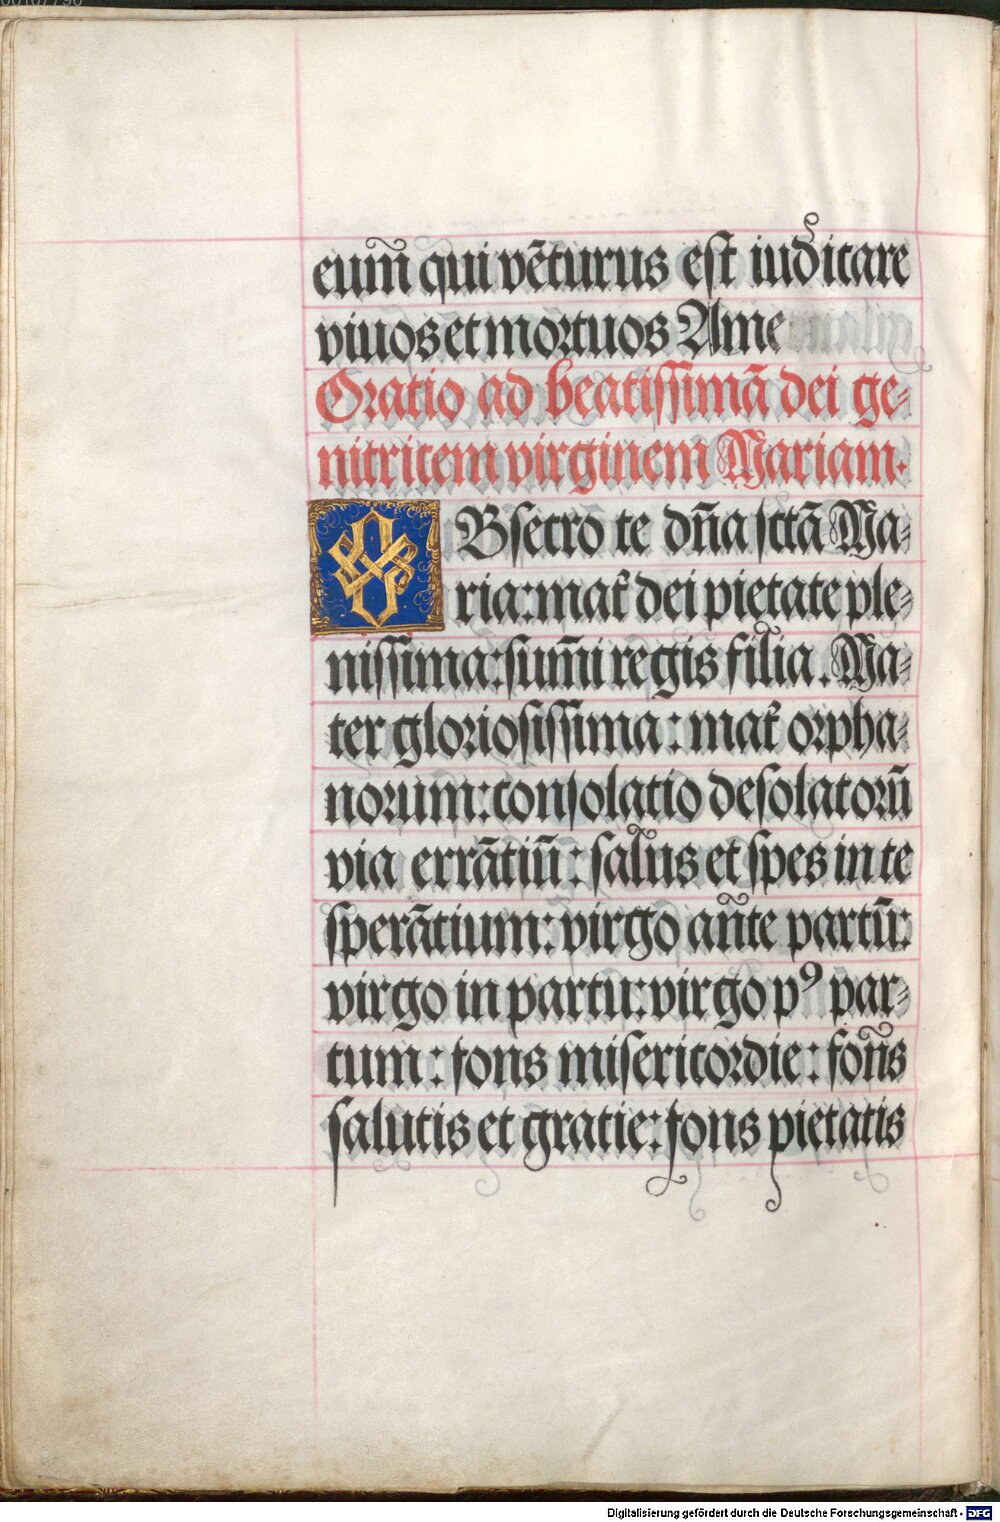 eum̄ qui vēturus est iudicare
viuos et mortuos Ame
Oratio ad beatissimā dei ge⸗
nitricem virginem Mariam.
OBsecro te dn̄a sctā Ma⸗
ria: mat̄ dei pietate ple⸗
nissima: sum̄i regis filia. Ma⸗
ter gloriosissima: mat̄ orpha⸗
norum: consolatio desolatorū
via errātiū: salus et spes in te
sperātium: virgo an̄te partū:
virgo in partu: virgo pꝰ par⸗
tum: fons misericordie: fon̄s
salutis et gratie: fons pietatis
Digitalisierung gefördert durch die Deutsche Forschungsgemeinschaft - DFG